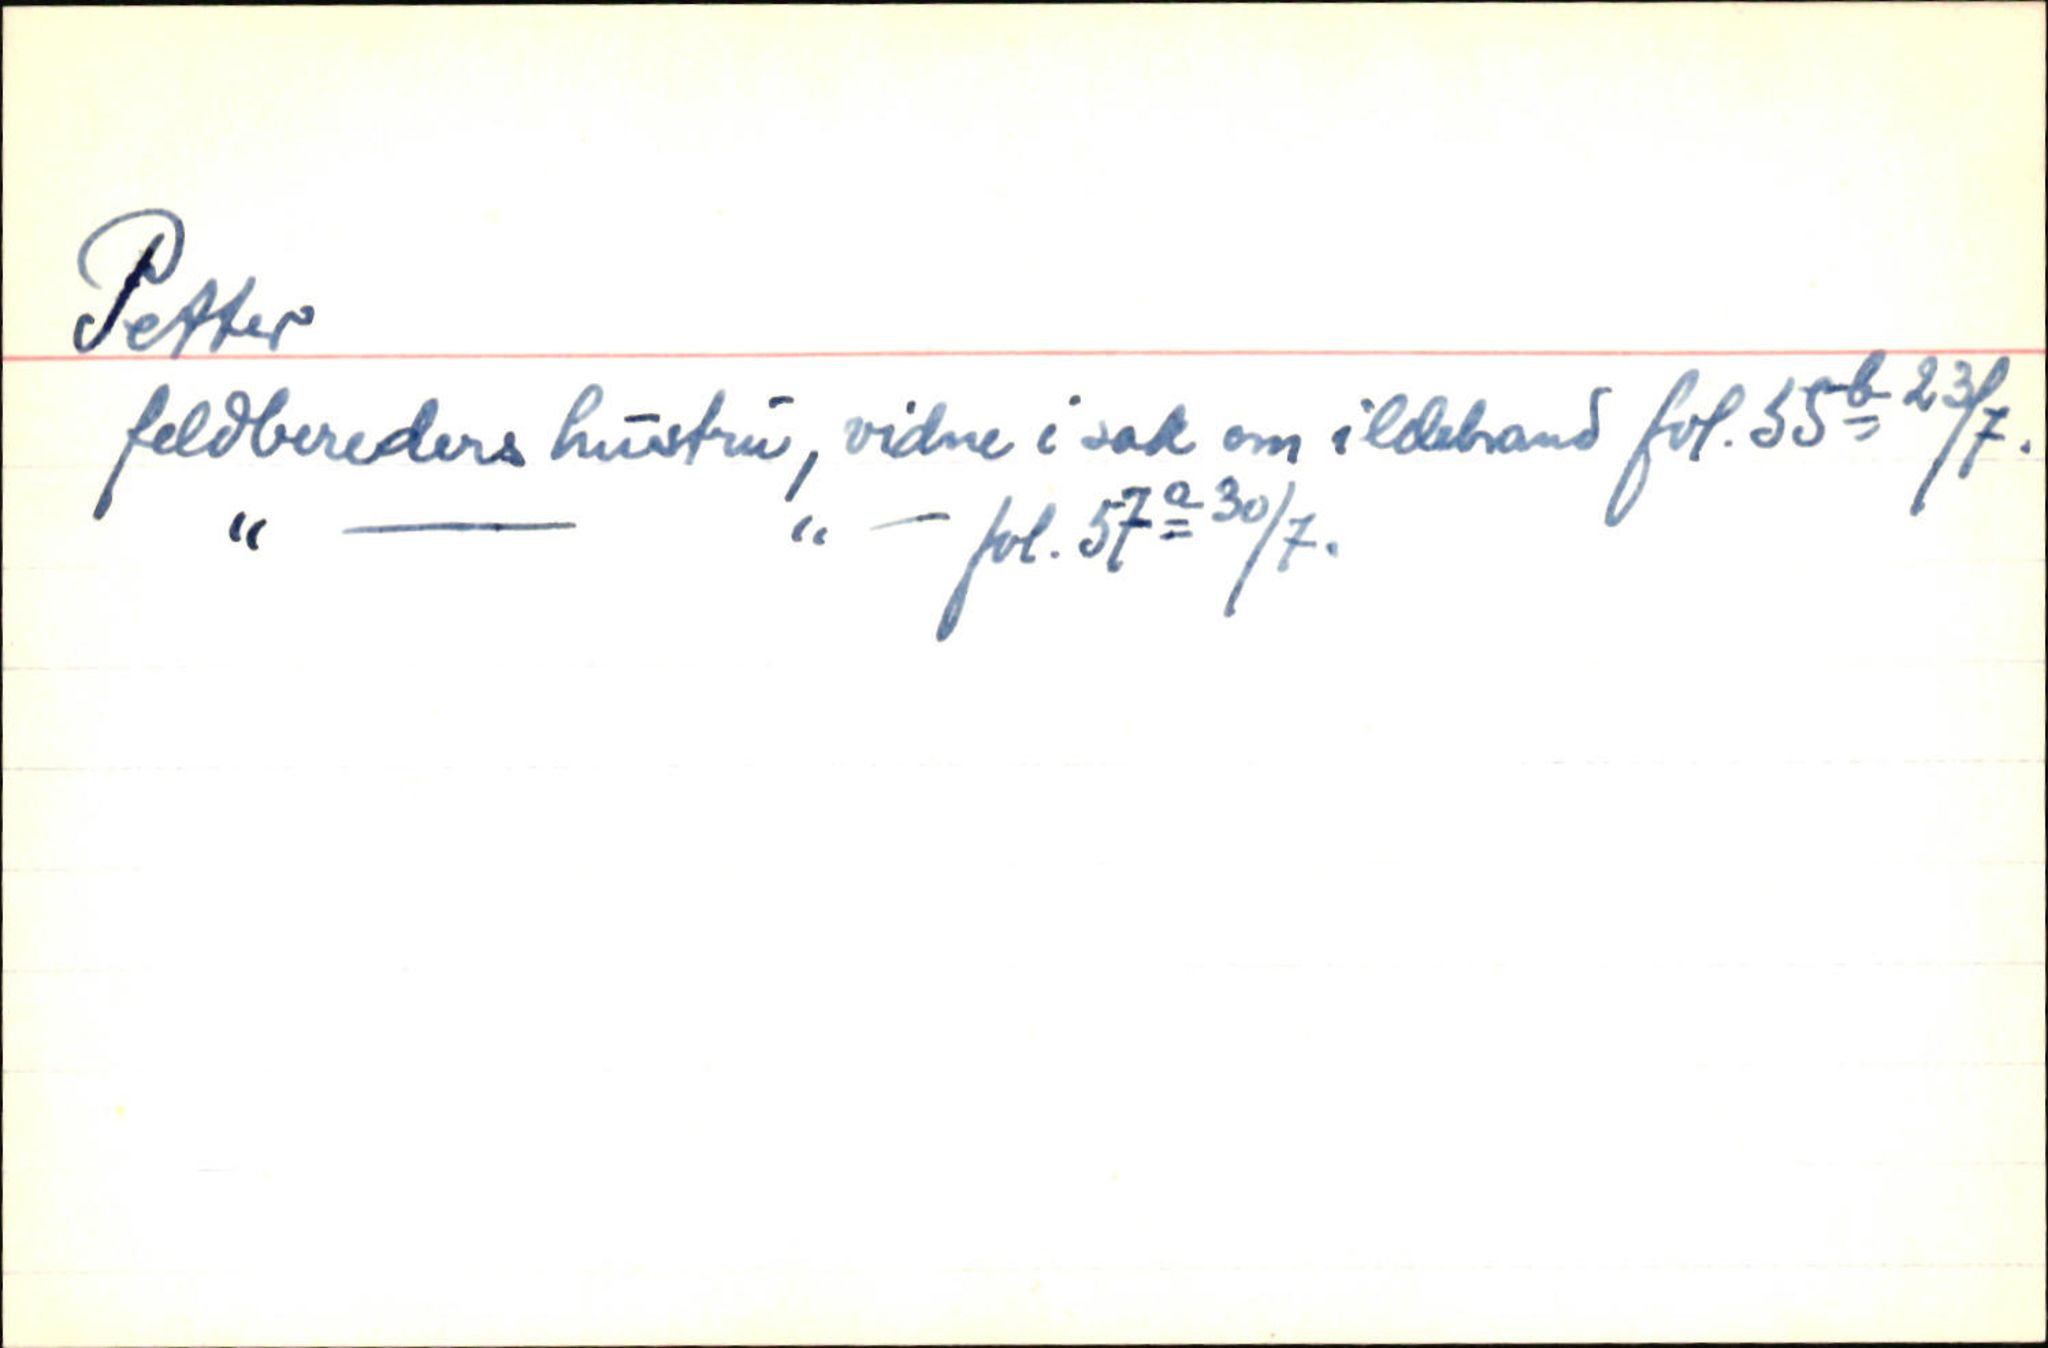 Petter
feldbereders hustru, vidne i sak om ildebrand fol. 55b 23/7.
" — " — fol. 57a 30/7.